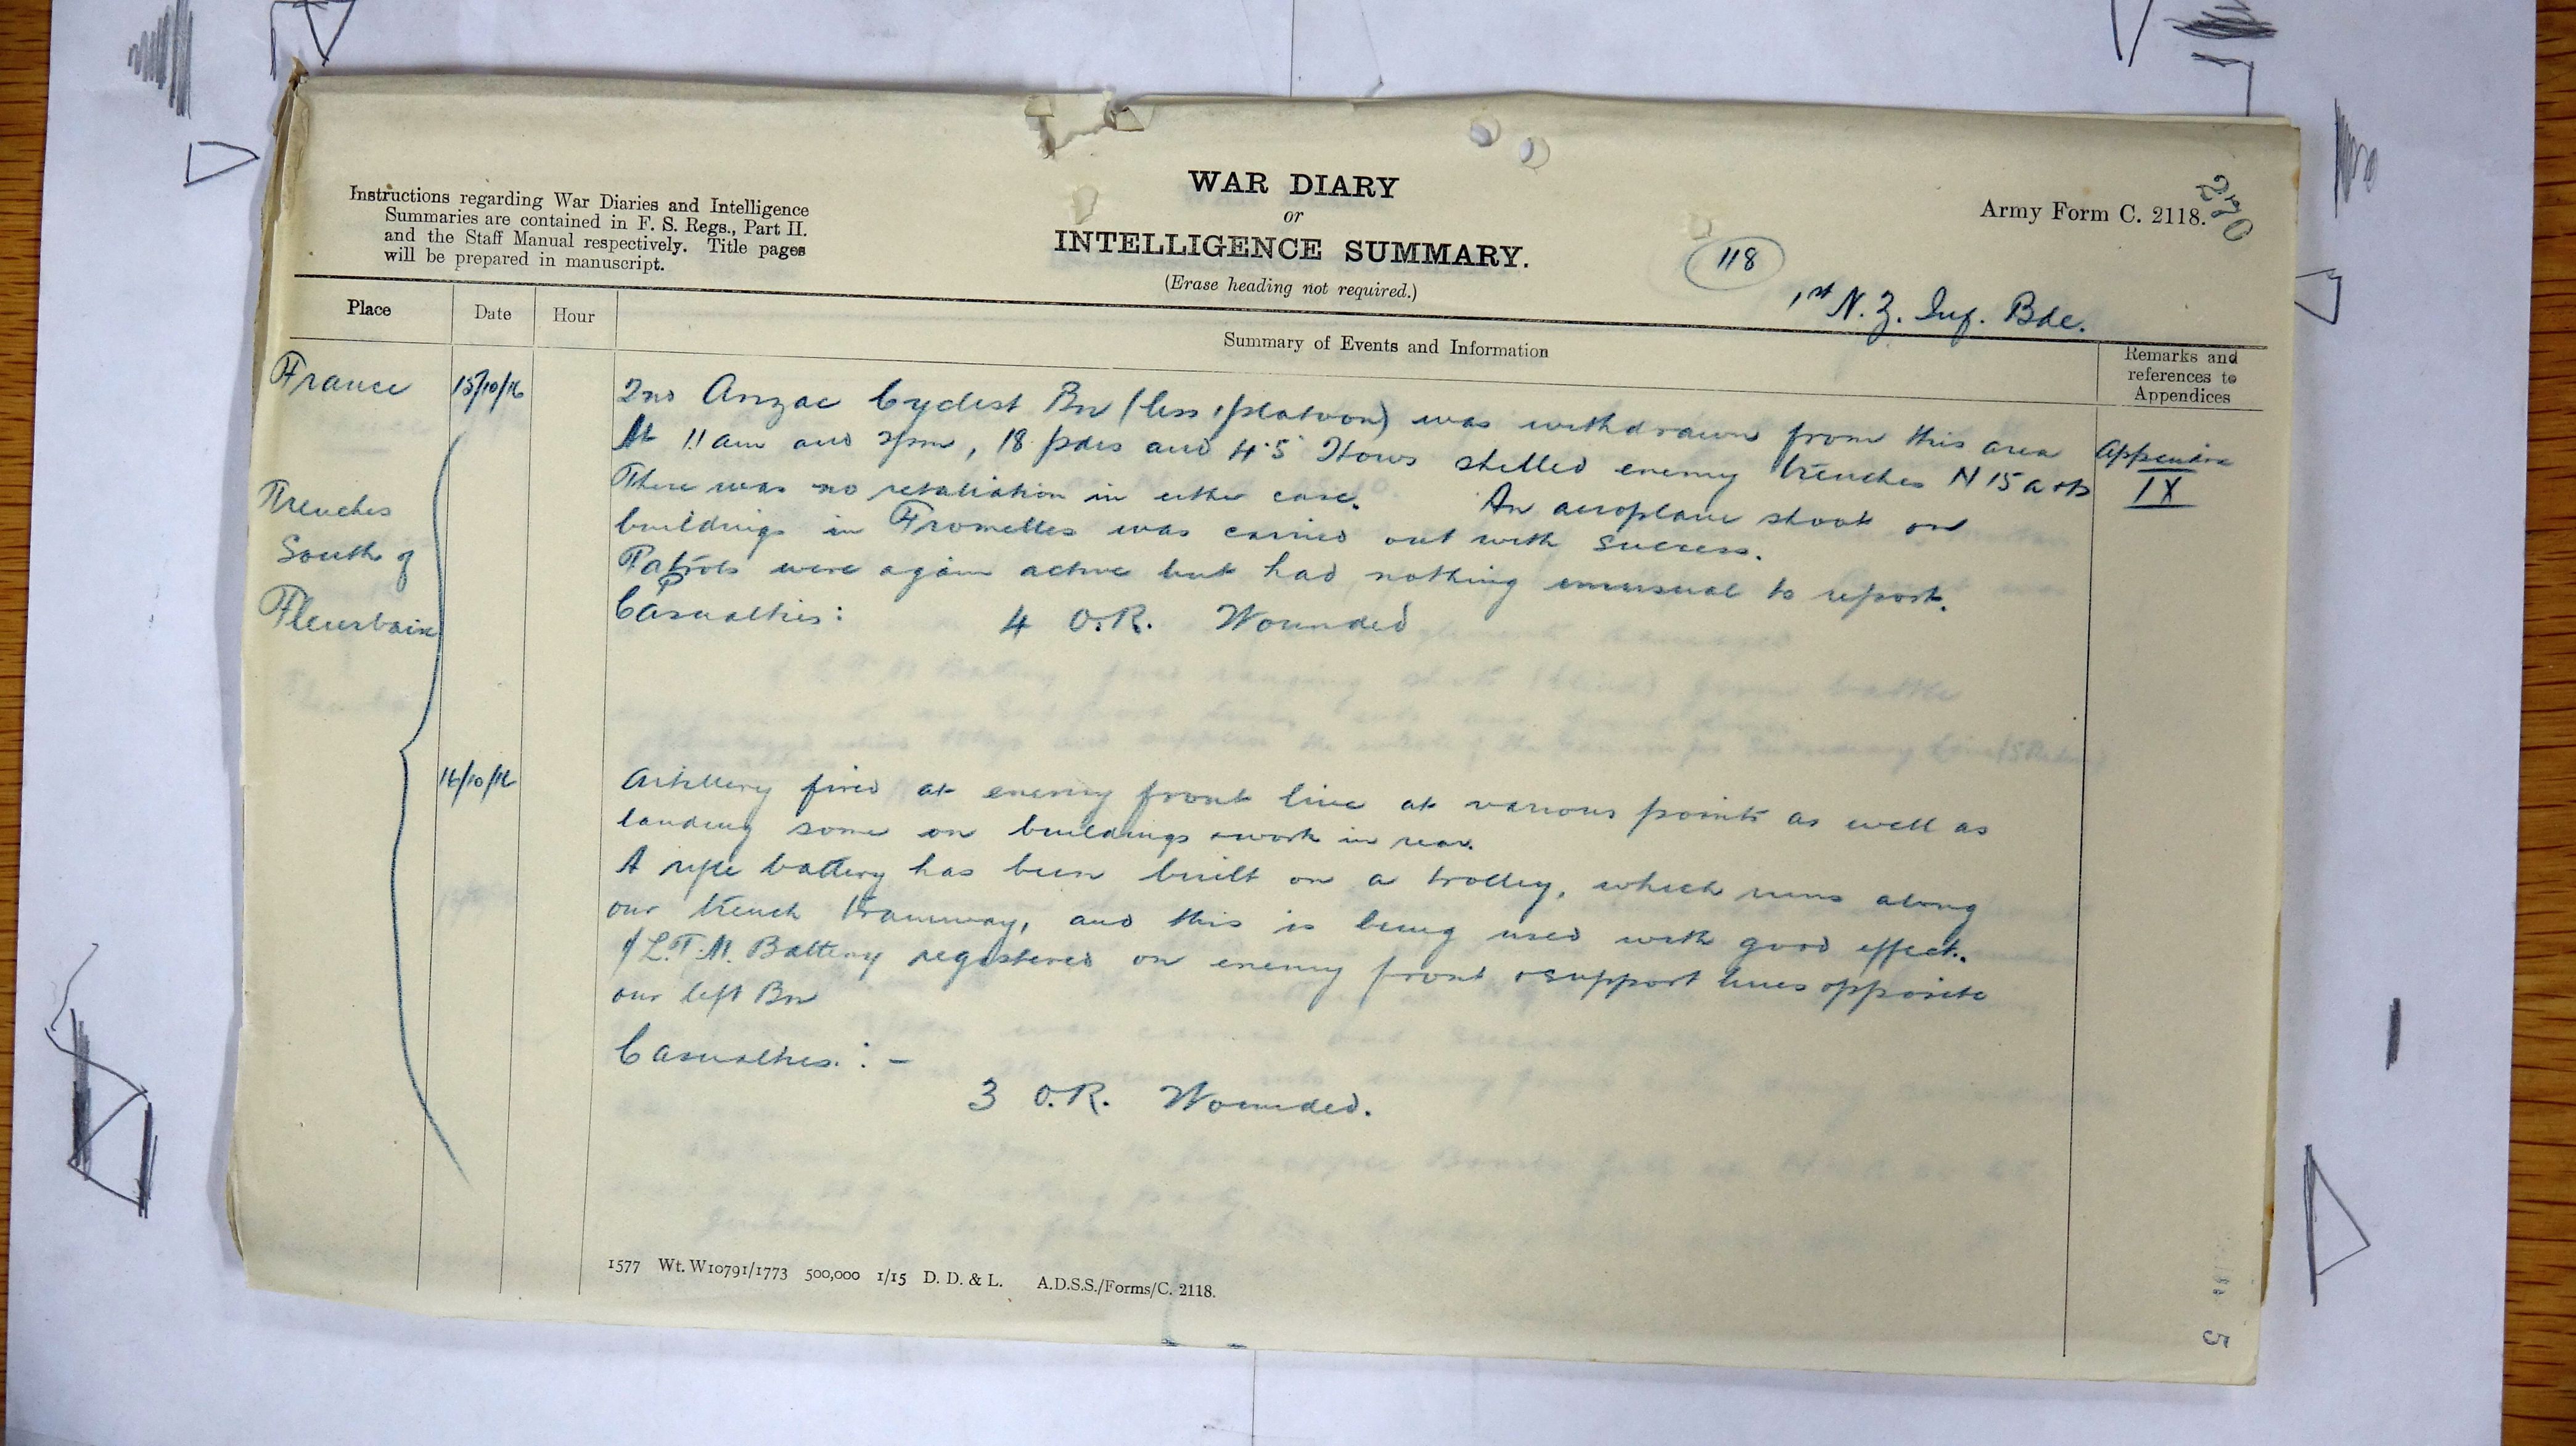 Instructions regarding War Diaries and Intelligence
Summaries are contained in F. S. Regs., Part II.
and the Staff Manual respectively. Title pages
will be prepared in manuscript.
WAR DIARY
or
INTELLIGENCE SUMMARY.
(Erase heading not required.)
118
Army Form C. 2118.
270
1st N. Z. Inf. Bde.
Place
Date
Hour
Summary of Events and Information
Remarks and
references to
Appendices
France
15/10/16
Trenches
South of
Fleurbaix
2nd Anzac Cyclist Bn (less 1 platoon) was withdrawn from this area
At 11 am and 2pm, 18 pdrs and 4.5 Hows shelled enemy trenches N 15 a & b
There was no retaliation in either case. An aeroplane shoot on
buildings in Fromelles was carried out with success.
Patrols were again active but had nothing unusual to report.
Casualties:
4 O.R. Wounded
Appendix
IX
16/10/16
Artillery fired at enemy front line at various points as well as
landing some on buildings & work in rear.
A rifle battery has been built on a trolley, which runs along
our trench tramway, and this is being used with good effect.
1/L.T.M. Battery registered on enemy front & support lines opposite
our left Bn
Casualties. : -
3 O.R. Wounded.
1577 Wt. W10791/1773 500,000 1/15 D. D. & L. A.D.S.S./Forms/C. 2118.
5